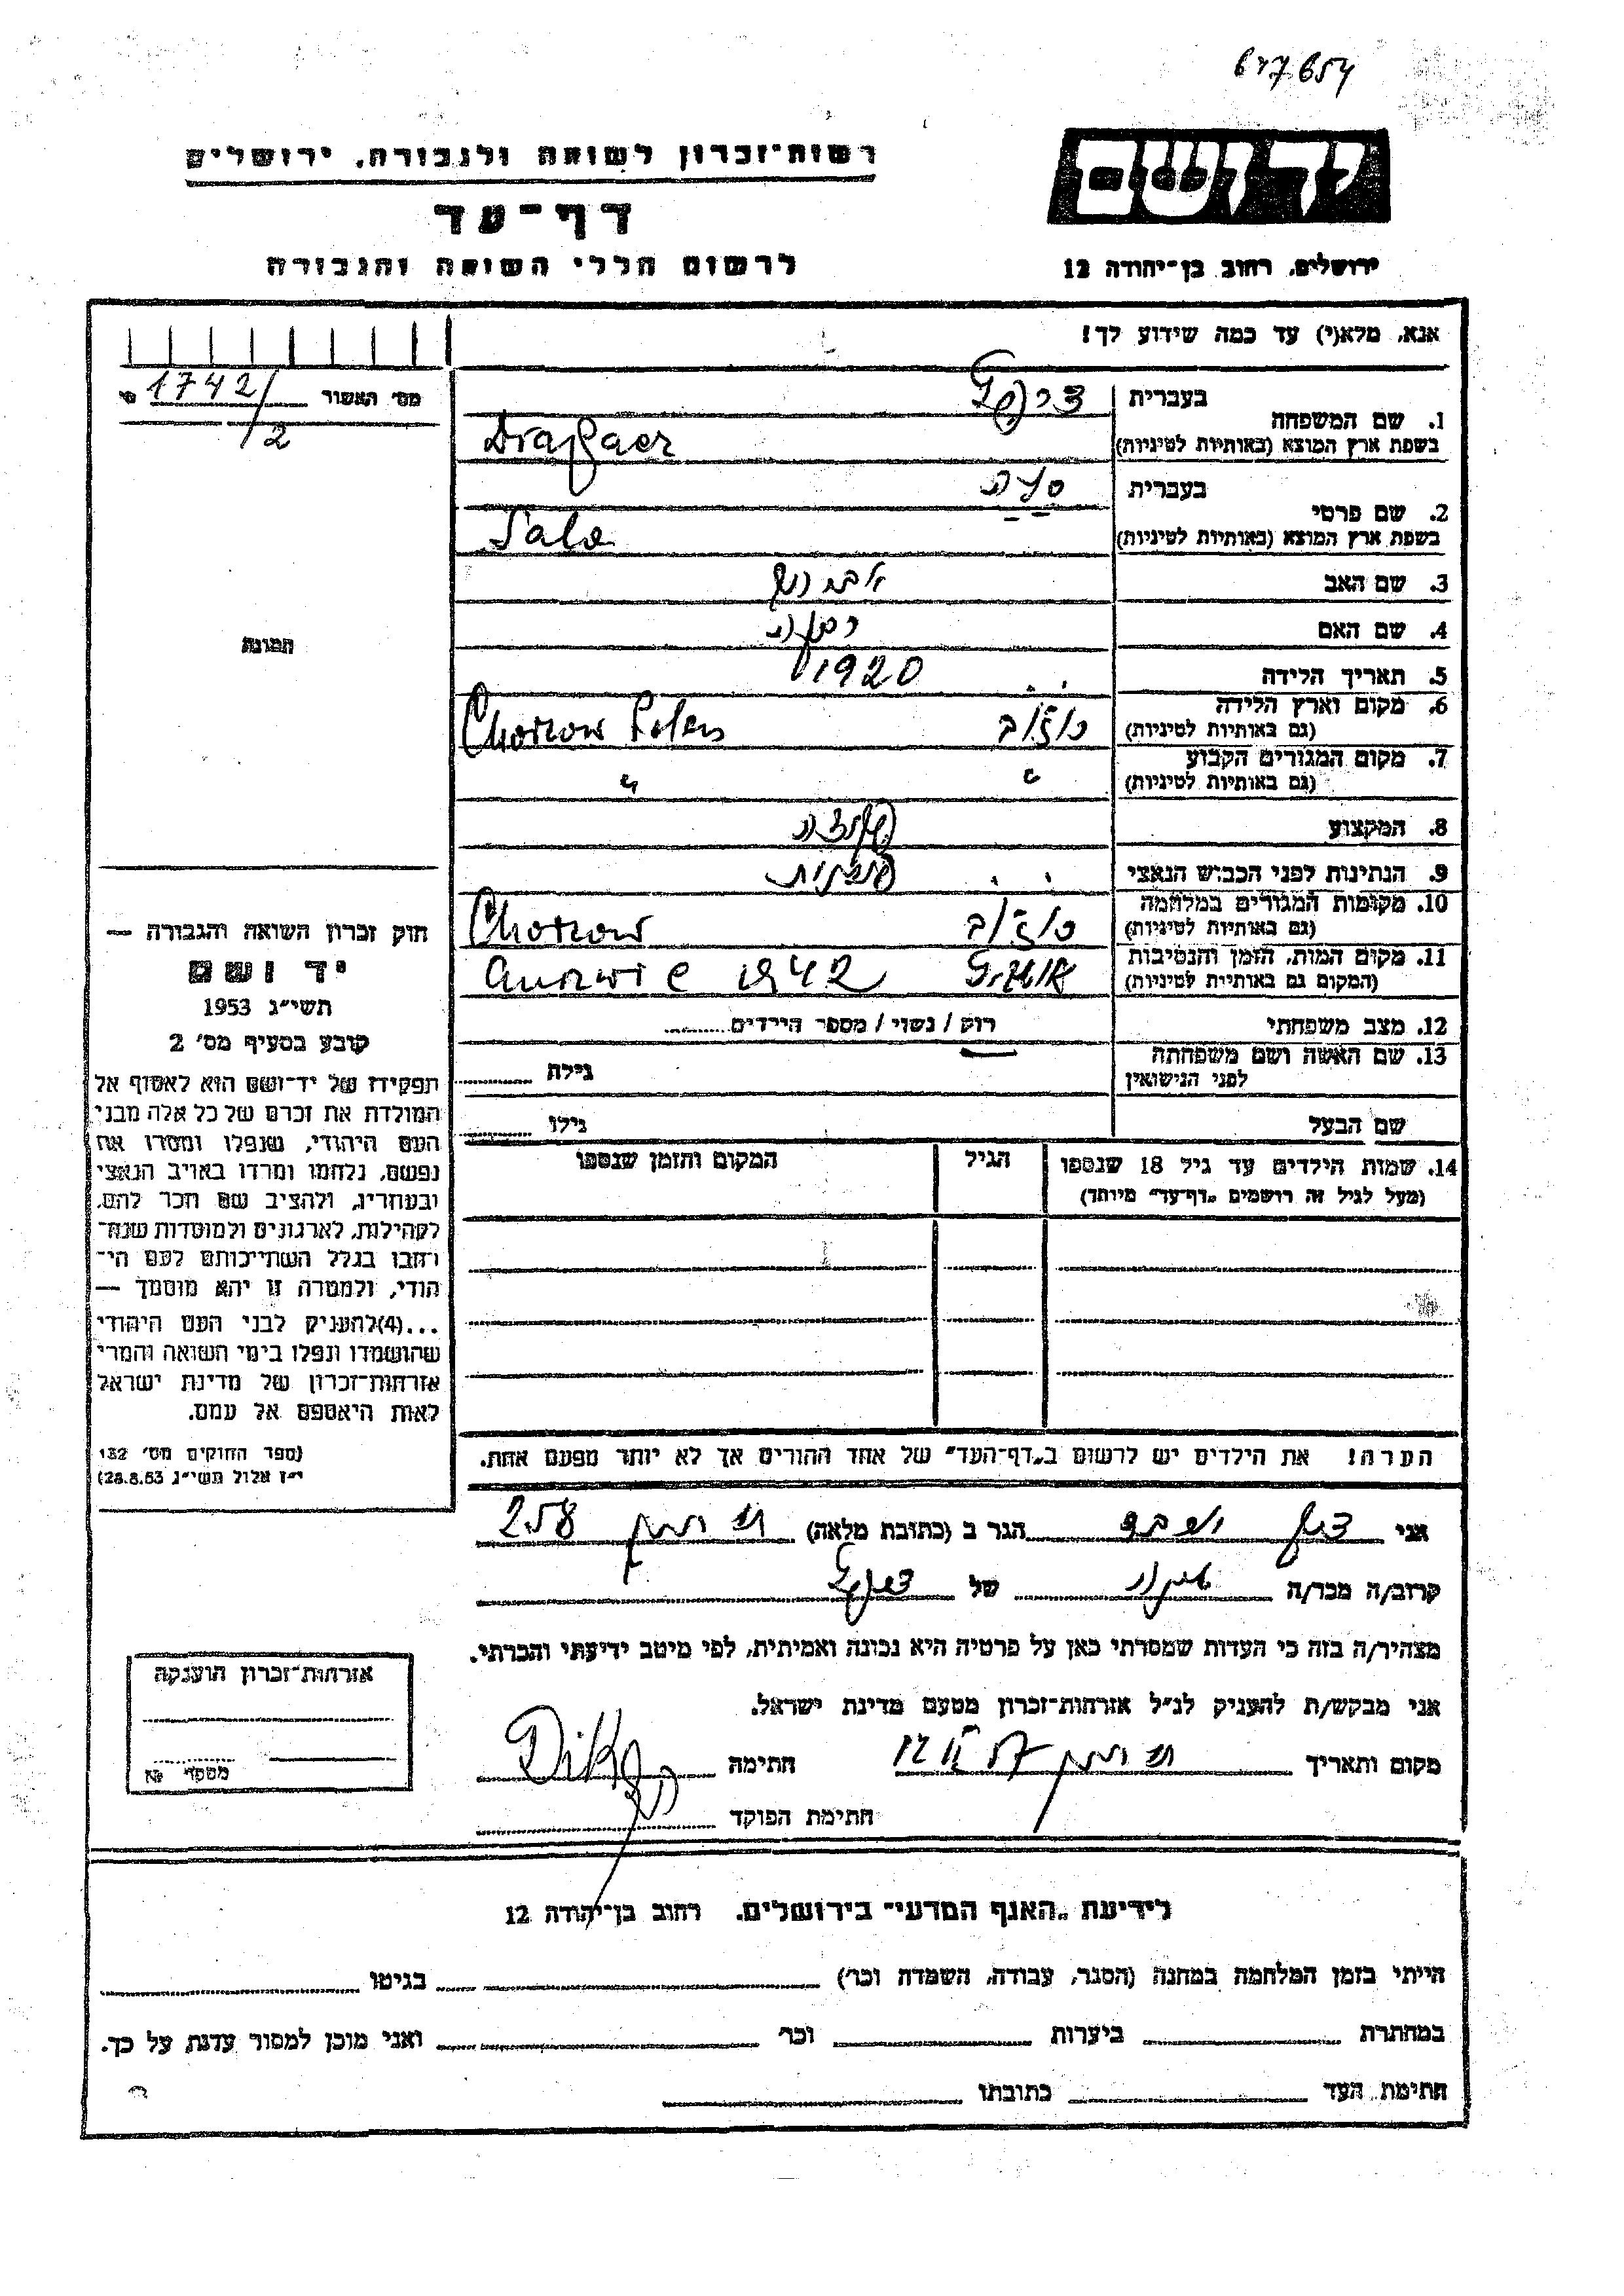 677654
רשות־זכרון לשואה ולגבורה, ירושלים
יד ושם
דף־עד
לרשום חללי השואה והגבורה
ירושלים, רחוב בן־יהודה 12
אנא, מלא(י) עד כמה שידוע לך!
מס׳ האשור 1742/2
1. שם המשפחה
בעברית
בשפת ארץ המוצא (באותיות לטיניות)
2. שם פרטי
בעברית סלה
בשפת ארץ המוצא (באותיות לטיניות) Sala
3. שם האב אברהם
4. שם האם
5. תאריך הלידה 1920
6. מקום וארץ הלידה
(גם באותיות לטיניות) Chorzow Polen
7. מקום המגורים הקבוע
(גם באותיות לטיניות) "
8. המקצוע
9. הנתינות לפני הכבוש הנאצי
10. מקומות המגורים במלחמה
(גם באותיות לטיניות) Chorzow
11. מקום המות, הזמן והנסיבות
(המקום גם באותיות לטיניות) 1942
12. מצב משפחתי רווק / נשוי / מספר הילדים
13. שם האשה ושם משפחתה
לפני הנישואין
גילה
שם הבעל
גילו
14. שמות הילדים עד גיל 18 שנספו
(מעל לגיל זה רושמים „דף־עד״ מיוחד)
הגיל
המקום והזמן שנספו
הערה! את הילדים יש לרשום ב„דף־העד״ של אחד ההורים אך לא יותר מפעם אחת.
תמונה
חוק זכרון השואה והגבורה —
יד ושם
תשי״ג 1953
קובע בסעיף מס׳ 2
תפקידו של יד־ושם הוא לאסוף אל
המולדת את זכרם של כל אלה מבני
העם היהודי, שנפלו ומסרו את
נפשם, נלחמו ומרדו באויב הנאצי
ובעוזריו, ולהציב שם וזכר להם,
לקהילות, לארגונים ולמוסדות שנח־
רבו בגלל השתייכותם לעם הי־
הודי, ולמטרה זו יהא מוסמך —
...(4)להעניק לבני העם היהודי
שהושמדו ונפלו בימי השואה והמרי
אזרחות־זכרון של מדינת ישראל
לאות היאספם אל עמם.
(ספר החוקים מס׳ 132
י״ז אלול תשי״ג 28.8.53)
אני
הגר ב (כתובת מלאה) 258
קרוב/ה מכר/ה
של
מצהיר/ה בזה כי העדות שמסרתי כאן על פרטיה היא נכונה ואמיתית, לפי מיטב ידיעתי והכרתי.
אני מבקש/ת להעניק לנ״ל אזרחות־זכרון מטעם מדינת ישראל.
מקום ותאריך
חתימה
חתימת הפוקד
אזרחות־זכרון הוענקה
מספר №
לידיעת „האגף המדעי״ בירושלים, רחוב בן־יהודה 12
הייתי בזמן המלחמה במחנה (הסגר, עבודה, השמדה וכו׳) בגיטו
במחתרת ביערות וכו׳ ואני מוכן למסור עדות על כך.
חתימת העד כתובתו